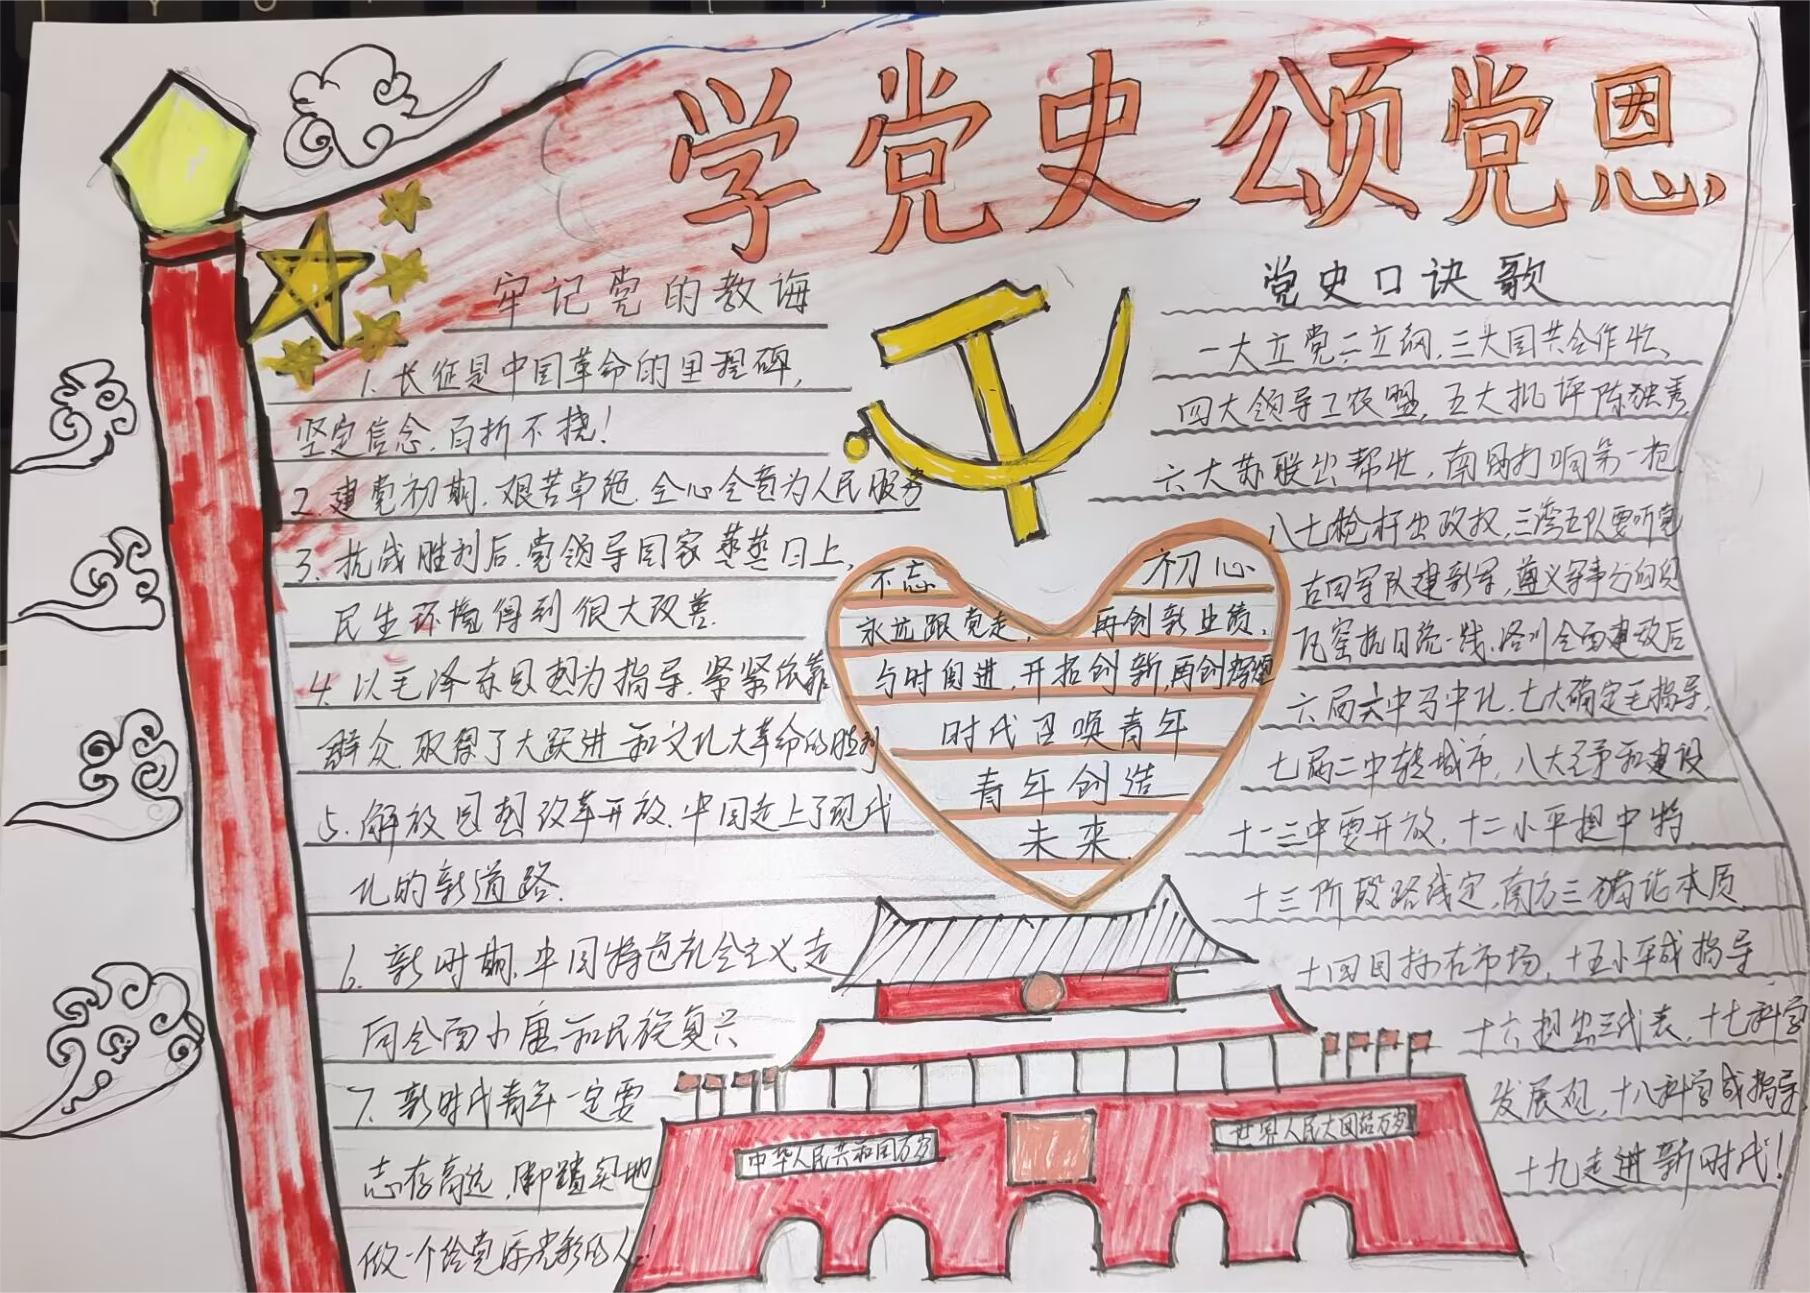 学党史 颂党恩
牢记党的教诲
1. 长征是中国革命的里程碑,
坚定信念.百折不挠!
2. 建党初期.艰苦卓绝.全心全意为人民服务
3. 抗战胜利后.党领导国家蒸蒸日上,
民生环境得到很大改善.
4. 以毛泽东思想为指导.紧紧依靠
群众.取得了大跃进和文化大革命的胜利
5. 解放思想改革开放.中国走上了现代
化的新道路.
6. 新时期.中国特色社会主义走
向全面小康和民族复兴
7. 新时代青年一定要
志存高远,脚踏实地
做一个给党添光彩的人.
不忘 初心
永远跟党走, 再创新业绩,
与时间进.开拓创新,再创辉煌
时代召唤青年
青年创造
未来.
中华人民共和国万岁
世界人民大团结万岁
党史口诀歌
一大立党二立纲,三大国共合作忙、
四大领导工农盟,五大批评陈独秀
六大苏联出帮忙,南昌打响第一枪
八七枪杆出政权,三湾五队要听党
古田军队建新军,遵义军事分的
瓦窑抗日统一线,洛川全面建政后
六届六中马中化.七大确定毛指导,
七届二中转城市,八大探索和建设
十一三中要开放,十二小平提中特,
十三阶段路线定,南方三猫论本质,
十四目标在市场,十五小平成指导
十六提出三代表,十七科学
发展观,十八科学成指导,
十九走进新时代!